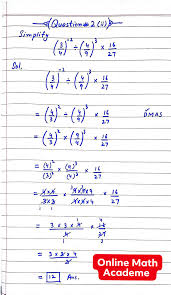 Question # 2 (ii)
Simplify
(3/4)^-2 ÷ (4/9)^3 × 16/27
Sol.
(3/4)^-2 ÷ (4/9)^3 × 16/27
= (4/3)^2 ÷ (4/9)^3 × 16/27
BMAS
= (4/3)^2 × (9/4)^3 × 16/27
= (4)^2/(3)^2 × (9)^3/(4)^3 × 16/27
= 4×4/3×3 × 9×9×9/4×4×4 × 16/27
= 3 × 3 ×
= 3 ×
= 12 Ans.
Online Math
Academe